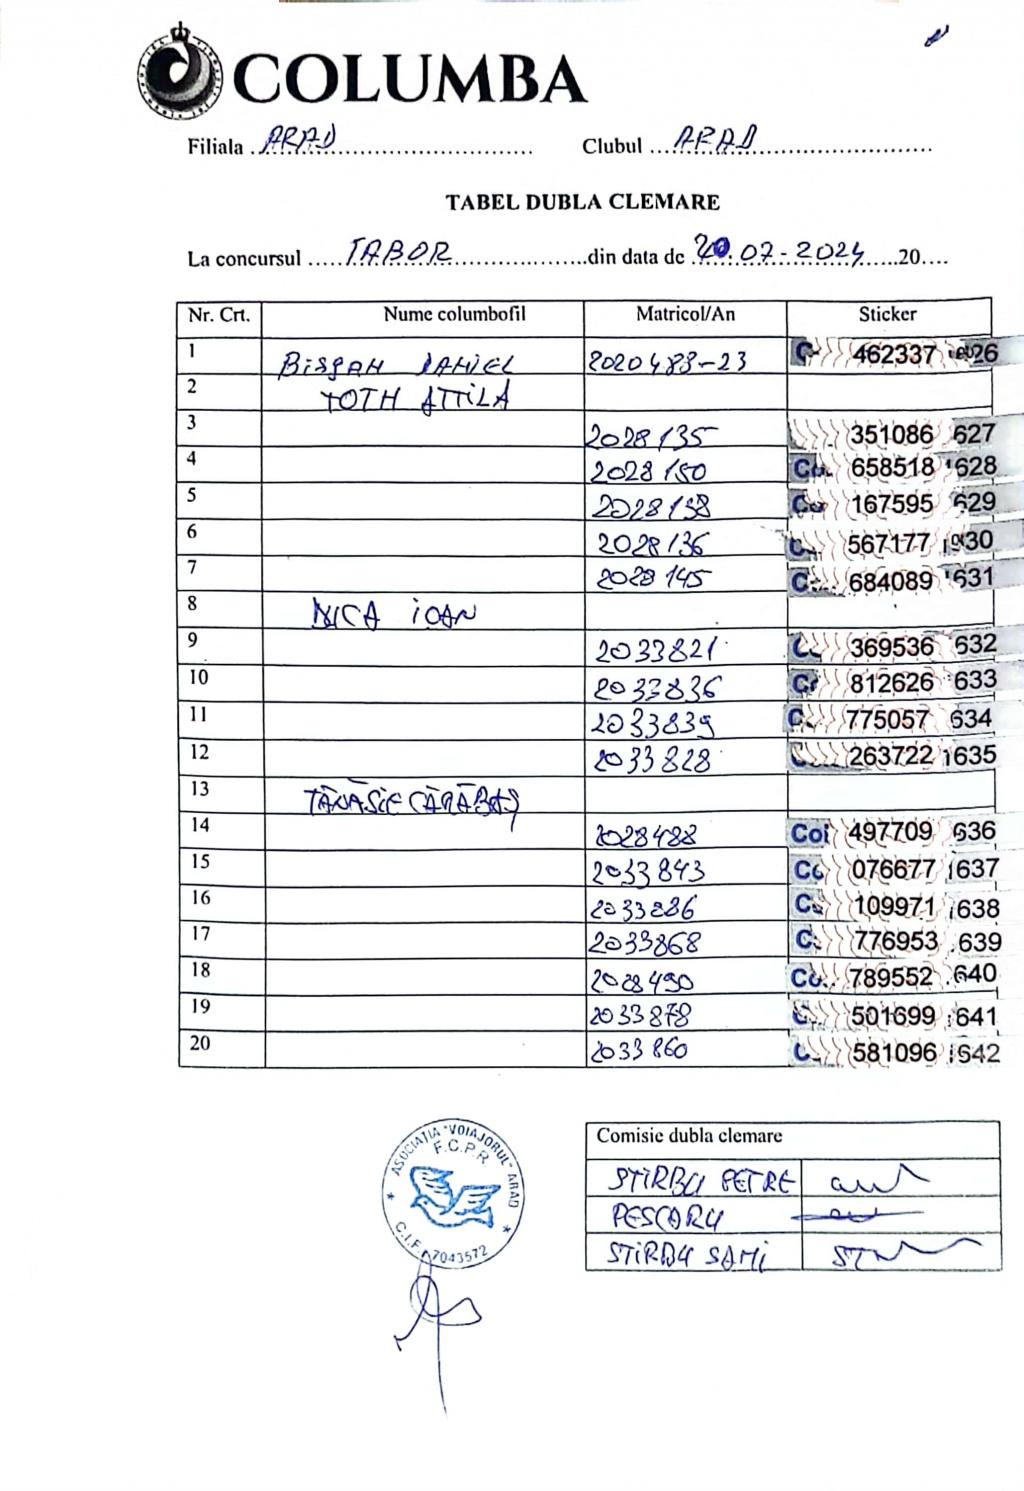 COLUMBA
Filiala ..ARAD.......................... Clubul ...ARAD..........................
TABEL DUBLA CLEMARE
La concursul .....TABOR.....................din data de 20.07-2024.....20....
Nr. Crt. Nume columbofil Matricol/An Sticker
1 2020483-23 462337
2 TOTH ATTILA
3 2028135 351086 627
4 2028150 658518 1628
5 2028138 167595 629
6 2028136 567177 30
7 2028145 684089 631
8 NICA IOAN
9 2033821 369536 632
10 2033836 812626 633
11 2033839 775057 634
12 2033828 263722 1635
13 TĂNASIE CĂRĂBAȘ
14 2028488 Col 497709 636
15 2033843 076677 1637
16 2033886 109971 1638
17 2033868 776953 639
18 2028490 789552 640
19 2033878 501699 641
20 2033860 581096 642
ASOCIAȚIA "VOIAJORUL" ARAD
F.C.P.R.
C.I.F. 7043572
Comisie dubla clemare
STIRBU PETRE
PESCARU
STIRBU SAMI